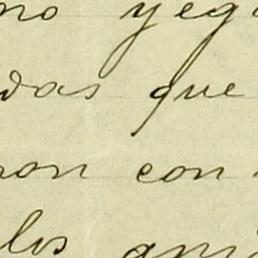 no yeg
das que
ron con
los ani